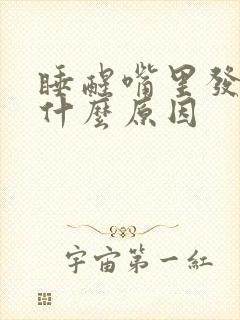 睡醒嘴里發
什麼原因
宇宙第一紅